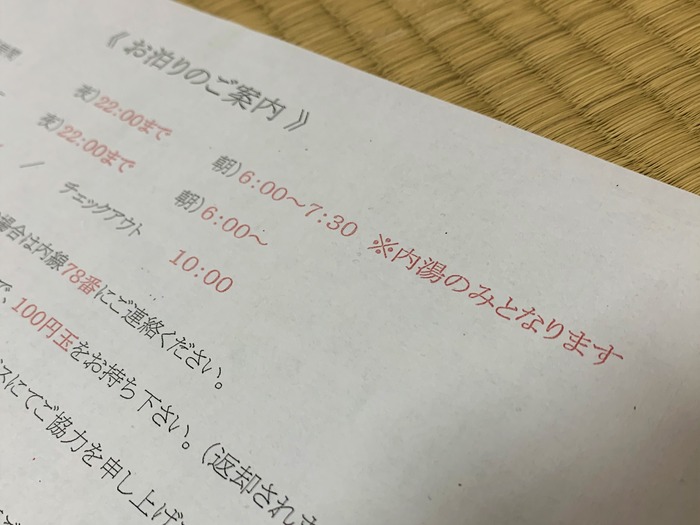 《 お泊りのご案内 》
夜）22:00まで 朝）6:00～7:30 ※内湯のみとなります
夜）22:00まで 朝）6:00～
／ チェックアウト 10:00
場合は内線78番にご連絡ください。
で、100円玉をお持ち下さい。（返却されま
にてご協力を申し上げ